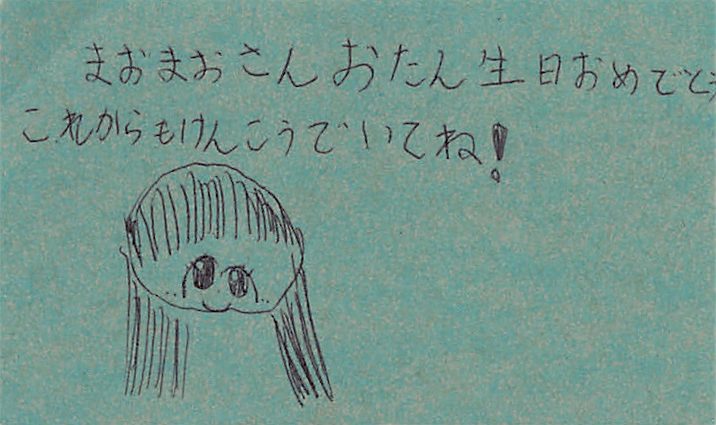 まおまおさん おたん生日おめでとう
これからもけんこうでいてね!